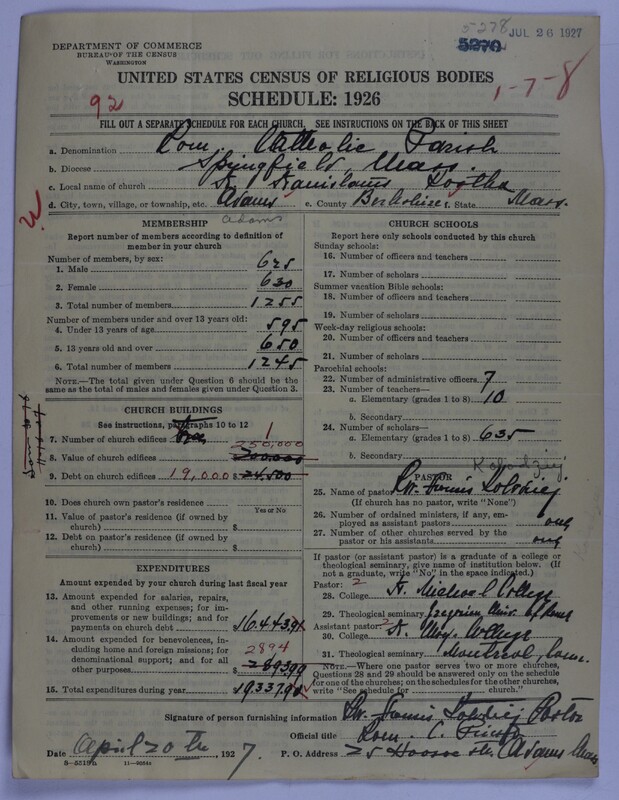 5278
5270 JUL 26 1927
DEPARTMENT OF COMMERCE
BUREAU OF THE CENSUS
WASHINGTON
UNITED STATES CENSUS OF RELIGIOUS BODIES
SCHEDULE: 1926
92
1-7-8
FILL OUT A SEPARATE SCHEDULE FOR EACH CHURCH. SEE INSTRUCTIONS ON THE BACK OF THIS SHEET
a. Denomination Rom. Catholic Parish
b. Diocese Springfield, Mass.
c. Local name of church St. Stanislaus Kostka
d. City, town, village, or township, etc. Adams e. County Berkshire f. State Mass.
Adams
MEMBERSHIP
Report number of members according to definition of
member in your church
Number of members, by sex:
1. Male 625
2. Female 630
3. Total number of members 1255
Number of members under and over 13 years old:
4. Under 13 years of age 595
5. 13 years old and over 650
6. Total number of members 1245
NOTE.—The total given under Question 6 should be the
same as the total of males and females given under Question 3.
CHURCH BUILDINGS
See instructions, paragraphs 10 to 12
7. Number of church edifices 1
250,000
8. Value of church edifices 200.000
9. Debt on church edifices 19,000 $24,500
10. Does church own pastor's residence
Yes or No
11. Value of pastor's residence (if owned by
church) $
12. Debt on pastor's residence (if owned by
church) $
EXPENDITURES
Amount expended by your church during last fiscal year
13. Amount expended for salaries, repairs,
and other running expenses; for im-
provements or new buildings; and for
payments on church debt $16.443.91
14. Amount expended for benevolences, in-
cluding home and foreign missions; for
denominational support; and for all
other purposes
2894
2893.99
15. Total expenditures during year $19337.90
CHURCH SCHOOLS
Report here only schools conducted by this church
Sunday schools:
16. Number of officers and teachers
17. Number of scholars
Summer vacation Bible schools:
18. Number of officers and teachers
19. Number of scholars
Week-day religious schools:
20. Number of officers and teachers
21. Number of scholars
Parochial schools:
22. Number of administrative officers 7
23. Number of teachers—
a. Elementary (grades 1 to 8) 10
b. Secondary
24. Number of scholars—
a. Elementary (grades 1 to 8) 635
b. Secondary
Kolodziej
PASTOR
25. Name of pastor Rev. Francis Kolodziej
(If church has no pastor, write "None")
26. Number of ordained ministers, if any, em-
ployed as assistant pastors one
27. Number of other churches served by the
pastor or his assistants one
If pastor (or assistant pastor) is a graduate of a college or
theological seminary, give name of institution below. (If
not a graduate, write "No" in the space indicated.)
Pastor: 2
28. College St. Michael College
29. Theological seminary Gregorian Univ. of Rome
Assistant pastor: 2
30. College St. Mary College
31. Theological seminary Montreal, Can.
NOTE.—Where one pastor serves two or more churches,
Questions 28 and 29 should be answered only on the schedule
for one of the churches; on the schedules for the other churches,
write "See schedule for church."
Signature of person furnishing information Rev. Francis Kolodziej Pastor
Official title Rom. C. Priest
Date April 20th, 1927. P. O. Address 25 Hoosac St. Adams Mass
8-5515b 11-9994